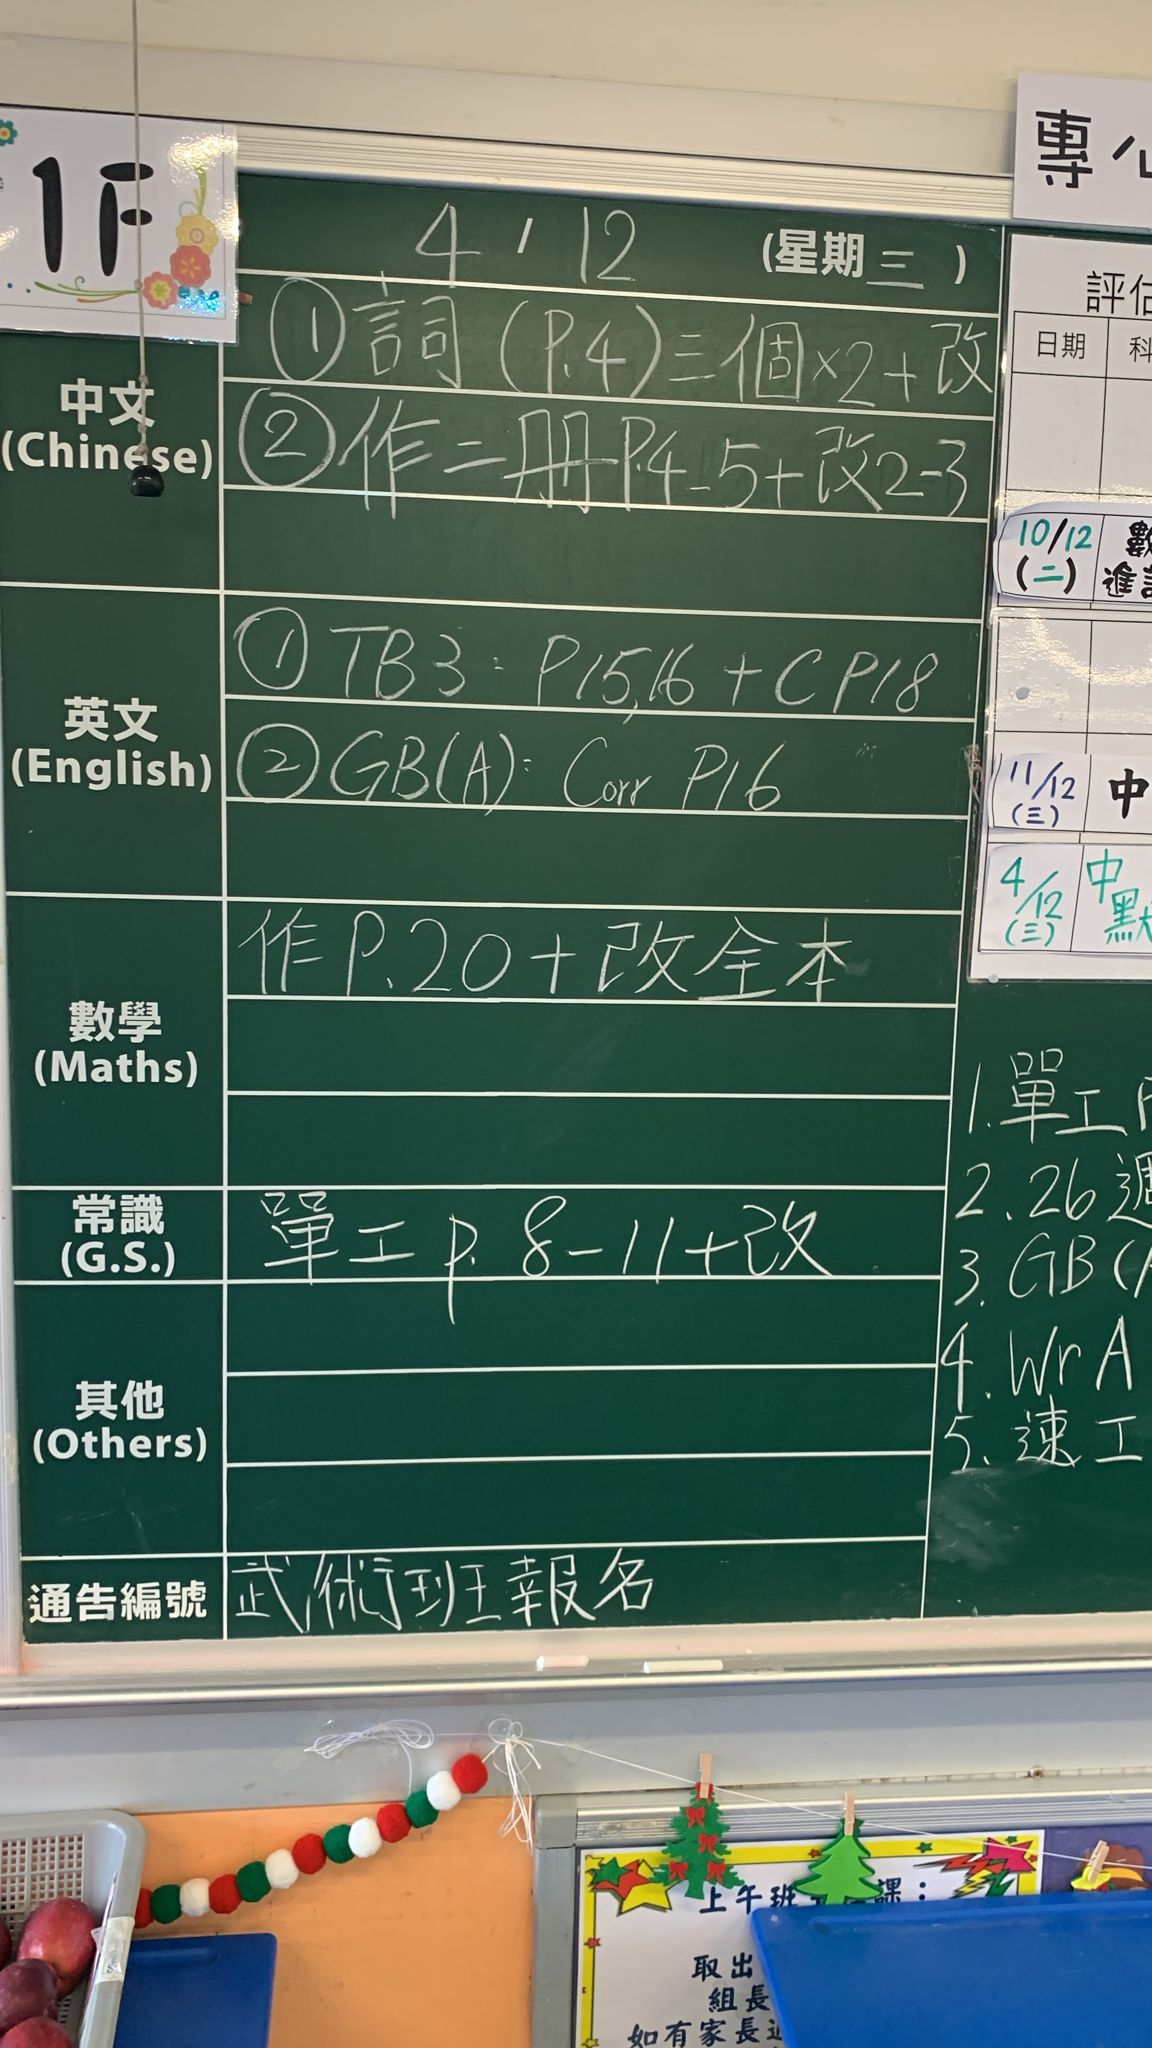 1F
專
4 , 12 (星期三)
中文
(Chinese)
① 詞 (P.4) 三個×2+改
② 作二册P.4-5+改2-3
英文
(English)
① TB3: P15,16 + C P18
② GB(A): Corr P16
數學
(Maths)
作P.20+改全本
常識
(G.S.)
單工p. 8-11+改
其他
(Others)
通告編號
武術班報名
日期
10/12
(二)
11/12
(三)
中
4/12
(三)
中
默
1. 單工
2. 26週
3. GB(
4. WrA
5. 速工
上午班
課：
取出
組長
如有家長